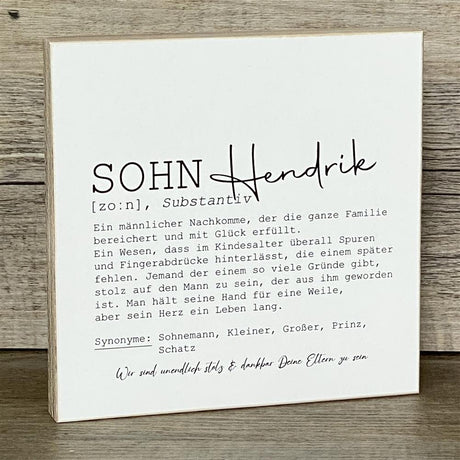 SOHN Hendrik
[zo:n], Substantiv
Ein männlicher Nachkomme, der die ganze Familie
bereichert und mit Glück erfüllt.
Ein Wesen, dass im Kindesalter überall Spuren
und Fingerabdrücke hinterlässt, die einem später
fehlen. Jemand der einem so viele Gründe gibt,
stolz auf den Mann zu sein, der aus ihm geworden
ist. Man hält seine Hand für eine Weile,
aber sein Herz ein Leben lang.
Synonyme: Sohnemann, Kleiner, Großer, Prinz,
Schatz
Wir sind unendlich stolz & dankbar Deine Eltern zu sein